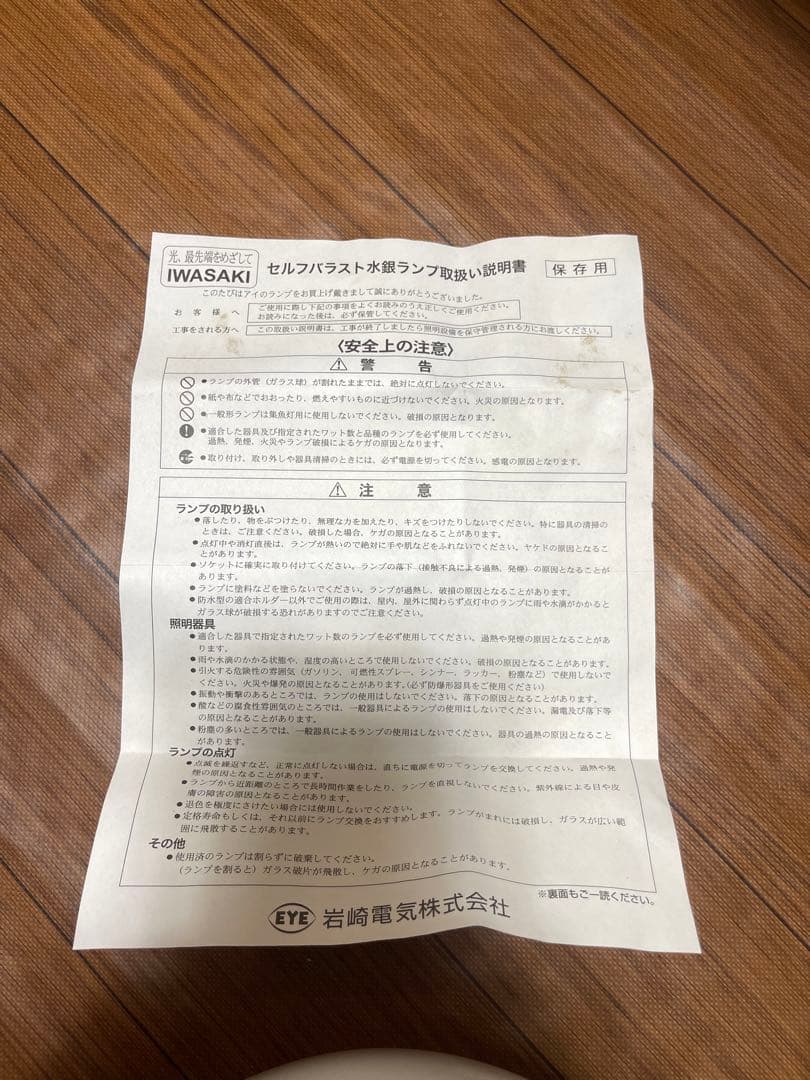 光、最先端をめざして
IWASAKI
セルフバラスト水銀ランプ取扱い説明書
保存用
このたびはアイのランプをお買上げ戴きまして誠にありがとうございました。
お客様へ
ご使用に際し下記の事項をよくお読みのうえ正しくご使用ください。
お読みになった後は、必ず保管してください。
工事をされる方へ
この取扱い説明書は、工事が終了しましたら照明設備を保守管理される方にお渡しください。
〈安全上の注意〉
⚠ 警告
●ランプの外管（ガラス球）が割れたままでは、絶対に点灯しないでください。
●紙や布などでおおったり、燃えやすいものに近づけないでください。火災の原因となります。
●一般形ランプは集魚灯用に使用しないでください。破損の原因となります。
●適合した器具及び指定されたワット数と品種のランプを必ず使用してください。
過熱、発煙、火災やランプ破損によるケガの原因となります。
●取り付け、取り外しや器具清掃のときには、必ず電源を切ってください。感電の原因となります。
⚠ 注意
ランプの取り扱い
●落したり、物をぶつけたり、無理な力を加えたり、キズをつけたりしないでください。特に器具の清掃の
ときは、ご注意ください。破損した場合、ケガの原因となることがあります。
●点灯中や消灯直後は、ランプが熱いので絶対に手や肌などをふれないでください。ヤケドの原因となるこ
とがあります。
●ソケットに確実に取り付けてください。ランプの落下（接触不良による過熱、発煙）の原因となることが
あります。
●ランプに塗料などを塗らないでください。ランプが過熱し、破損の原因となることがあります。
●防水型の適合ホルダー以外でご使用の際は、屋内、屋外に関わらず点灯中のランプに雨や水滴がかかると
ガラス球が破損する恐れがありますのでご注意ください。
照明器具
●適合した器具で指定されたワット数のランプを必ず使用してください。過熱や発煙の原因となることがあ
ります。
●雨や水滴のかかる状態や、湿度の高いところで使用しないでください。破損の原因となることがあります。
●引火する危険性の雰囲気（ガソリン、可燃性スプレー、シンナー、ラッカー、粉塵など）で使用しないで
ください。火災や爆発の原因となることがあります。（必ず防爆形器具をご使用ください）
●振動や衝撃のあるところでは、ランプの使用はしないでください。落下の原因となることがあります。
●酸などの腐食性雰囲気のところでは、一般器具によるランプの使用はしないでください。漏電及び落下等
の原因となることがあります。
●粉塵の多いところでは、一般器具によるランプの使用はしないでください。器具の過熱の原因となること
があります。
ランプの点灯
●点滅を繰返すなど、正常に点灯しない場合は、直ちに電源を切ってランプを交換してください。過熱や発
煙の原因となることがあります。
●ランプから近距離のところで長時間作業をしたり、ランプを直視しないでください。紫外線による目や皮
膚の障害の原因となることがあります。
●退色を極度にさけたい場合には使用しないでください。
●定格寿命もしくは、それ以前にランプ交換をおすすめします。ランプがまれには破損し、ガラスが広い範
囲に飛散することがあります。
その他
●使用済のランプは割らずに破棄してください。
（ランプを割ると）ガラス破片が飛散し、ケガの原因となることがあります。
※裏面もご一読ください。
EYE 岩崎電気株式会社